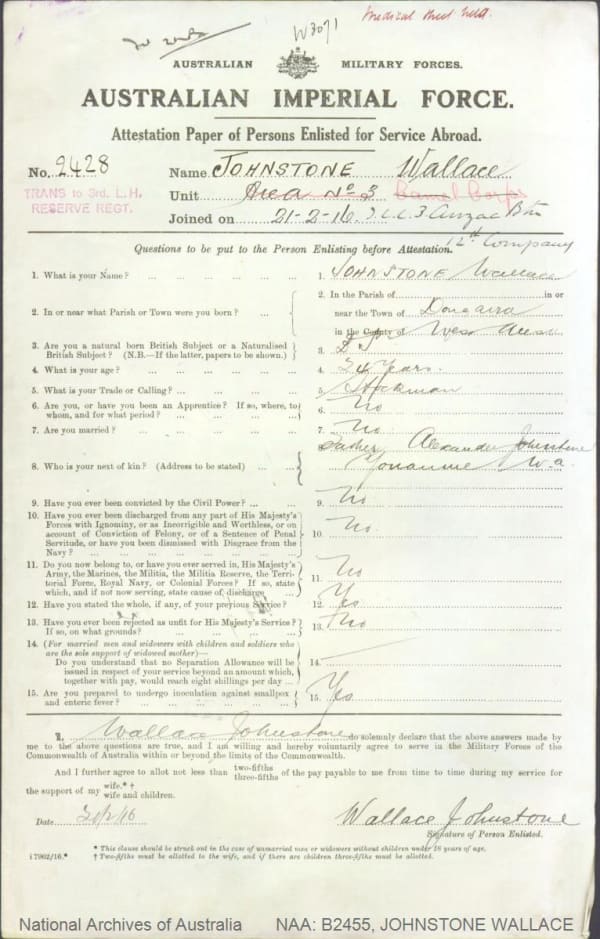 Medical sheet held.
W3071
AUSTRALIAN MILITARY FORCES.
AUSTRALIAN IMPERIAL FORCE.
Attestation Paper of Persons Enlisted for Service Abroad.
No. 2428 Name JOHNSTONE Wallace
TRANS to 3rd. L.H. Unit Area No 3 Camel Corps
RESERVE REGT. Joined on 21-2-16 I.C.C. 3 Anzac Btn
12th Company
Questions to be put to the Person Enlisting before Attestation.
1. What is your Name? ... 1. JOHNSTONE Wallace
2. In or near what Parish or Town were you born? ... 2. In the Parish of in or
near the Town of Dongarra
in the County of West Aust
3. Are you a natural born British Subject or a Naturalised
British Subject? (N.B.—If the latter, papers to be shown.) 3.
4. What is your age? ... 4. 34 Years.
5. What is your Trade or Calling? ... 5. Stockman
6. Are you, or have you been an Apprentice? If so, where, to
whom, and for what period? ... 6. No
7. Are you married? ... 7. No
8. Who is your next of kin? (Address to be stated) ... 8. Father Alexander Johnstone
W.a.
9. Have you ever been convicted by the Civil Power? ... 9. No
10. Have you ever been discharged from any part of His Majesty's
Forces with Ignominy, or as Incorrigible and Worthless, or on
account of Conviction of Felony, or of a Sentence of Penal
Servitude, or have you been dismissed with Disgrace from the
Navy? ... 10. No
11. Do you now belong to, or have you ever served in, His Majesty's
Army, the Marines, the Militia, the Militia Reserve, the Terri-
torial Force, Royal Navy, or Colonial Forces? If so, state
which, and if not now serving, state cause of discharge ... 11. No
12. Have you stated the whole, if any, of your previous Service? 12. Yes
13. Have you ever been rejected as unfit for His Majesty's Service?
If so, on what grounds? ... 13. No
14. (For married men and widowers with children and soldiers who
are the sole support of widowed mother)—
Do you understand that no Separation Allowance will be
issued in respect of your service beyond an amount which,
together with pay, would reach eight shillings per day ... 14.
15. Are you prepared to undergo inoculation against smallpox
and enteric fever? ... 15. Yes
I, Wallace Johnstone do solemnly declare that the above answers made by
me to the above questions are true, and I am willing and hereby voluntarily agree to serve in the Military Forces of the
Commonwealth of Australia within or beyond the limits of the Commonwealth.
And I further agree to allot not less than two-fifths three-fifths of the pay payable to me from time to time during my service for
the support of my wife.*† wife and children.
Date Wallace Johnstone
Signature of Person Enlisted.
* This clause should be struck out in the case of unmarried men or widowers without children under 18 years of age.
i 7962/16.* † Two-fifths must be allotted to the wife, and if there are children three-fifths must be allotted.
National Archives of Australia NAA: B2455, JOHNSTONE WALLACE